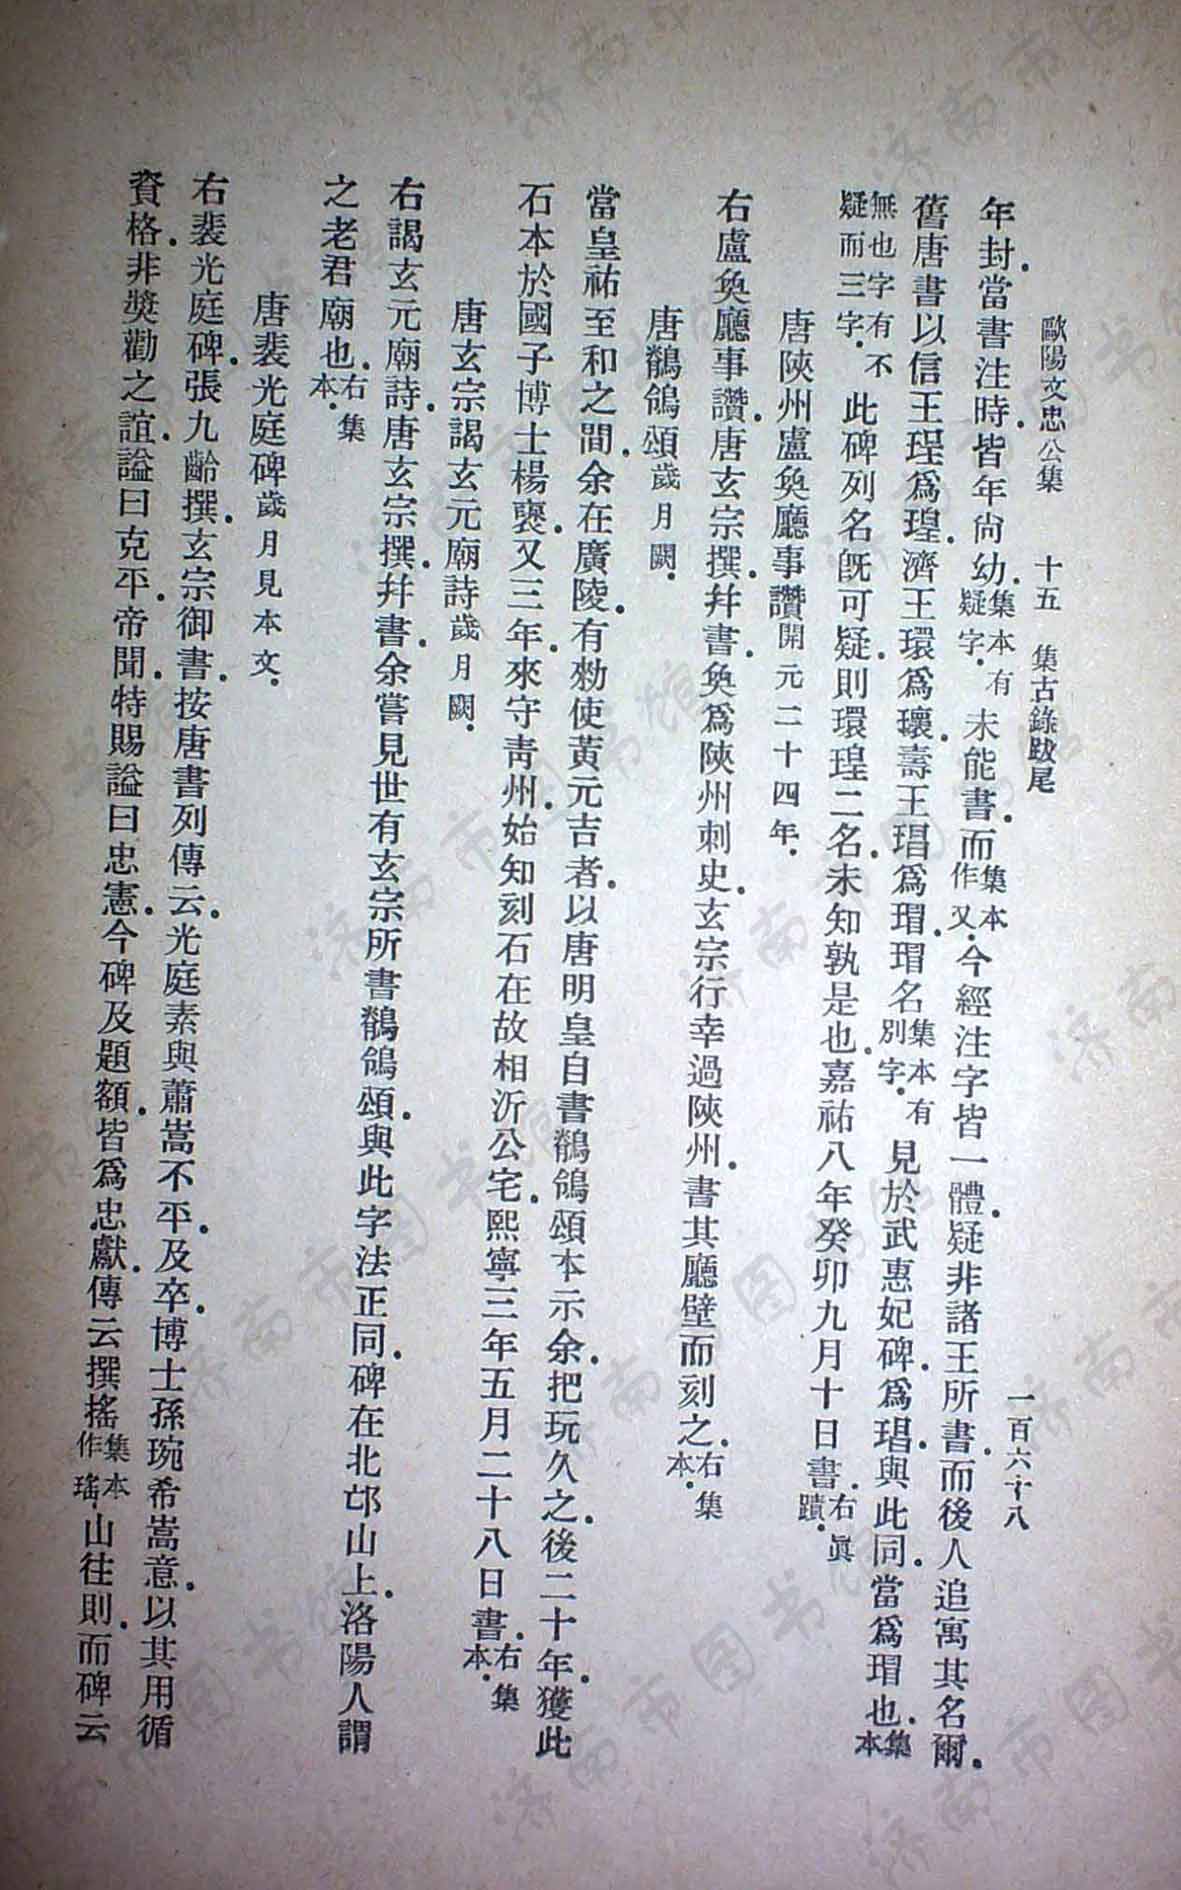 歐陽文忠公集 十五 集古錄跋尾 一百六十八
年封.當書注時.皆年尚幼.集本有疑字.未能書.而集本作又.今經注字皆一體.疑非諸王所書.而後人追寓其名爾.
舊唐書以信王珵爲瑝.濟王環爲瓌.壽王琩爲瑁.瑁名集本有別字.見於武惠妃碑.爲琩.與此同.當爲瑁也.集本
無也字有不疑而三字.此碑列名旣可疑.則環瑝二名.未知孰是也.嘉祐八年癸卯九月十日書.右眞蹟.
唐陝州盧奐廳事讚開元二十四年.
右盧奐廳事讚.唐玄宗撰.幷書.奐爲陝州刺史.玄宗行幸過陝州.書其廳壁而刻之.右集本.
唐鶺鴒頌歲月闕.
當皇祐至和之間.余在廣陵.有勑使黃元吉者.以唐明皇自書鶺鴒頌本示余.把玩久之.後二十年.獲此
石本於國子博士楊褒.又三年.來守靑州.始知刻石在故相沂公宅.熙寧三年五月二十八日書.右集本.
唐玄宗謁玄元廟詩歲月闕.
右謁玄元廟詩.唐玄宗撰.幷書.余嘗見世有玄宗所書鶺鴒頌.與此字法正同.碑在北邙山上.洛陽人謂
之老君廟也.右集本.
唐裴光庭碑歲月見本文.
右裴光庭碑.張九齡撰.玄宗御書.按唐書列傳云.光庭素與蕭嵩不平.及卒.博士孫琬希嵩意.以其用循
資格.非獎勸之誼.謚曰克平.帝聞.特賜謚曰忠憲.今碑及題額.皆爲忠獻.傳云撰搖集本作瑤.山往則.而碑云